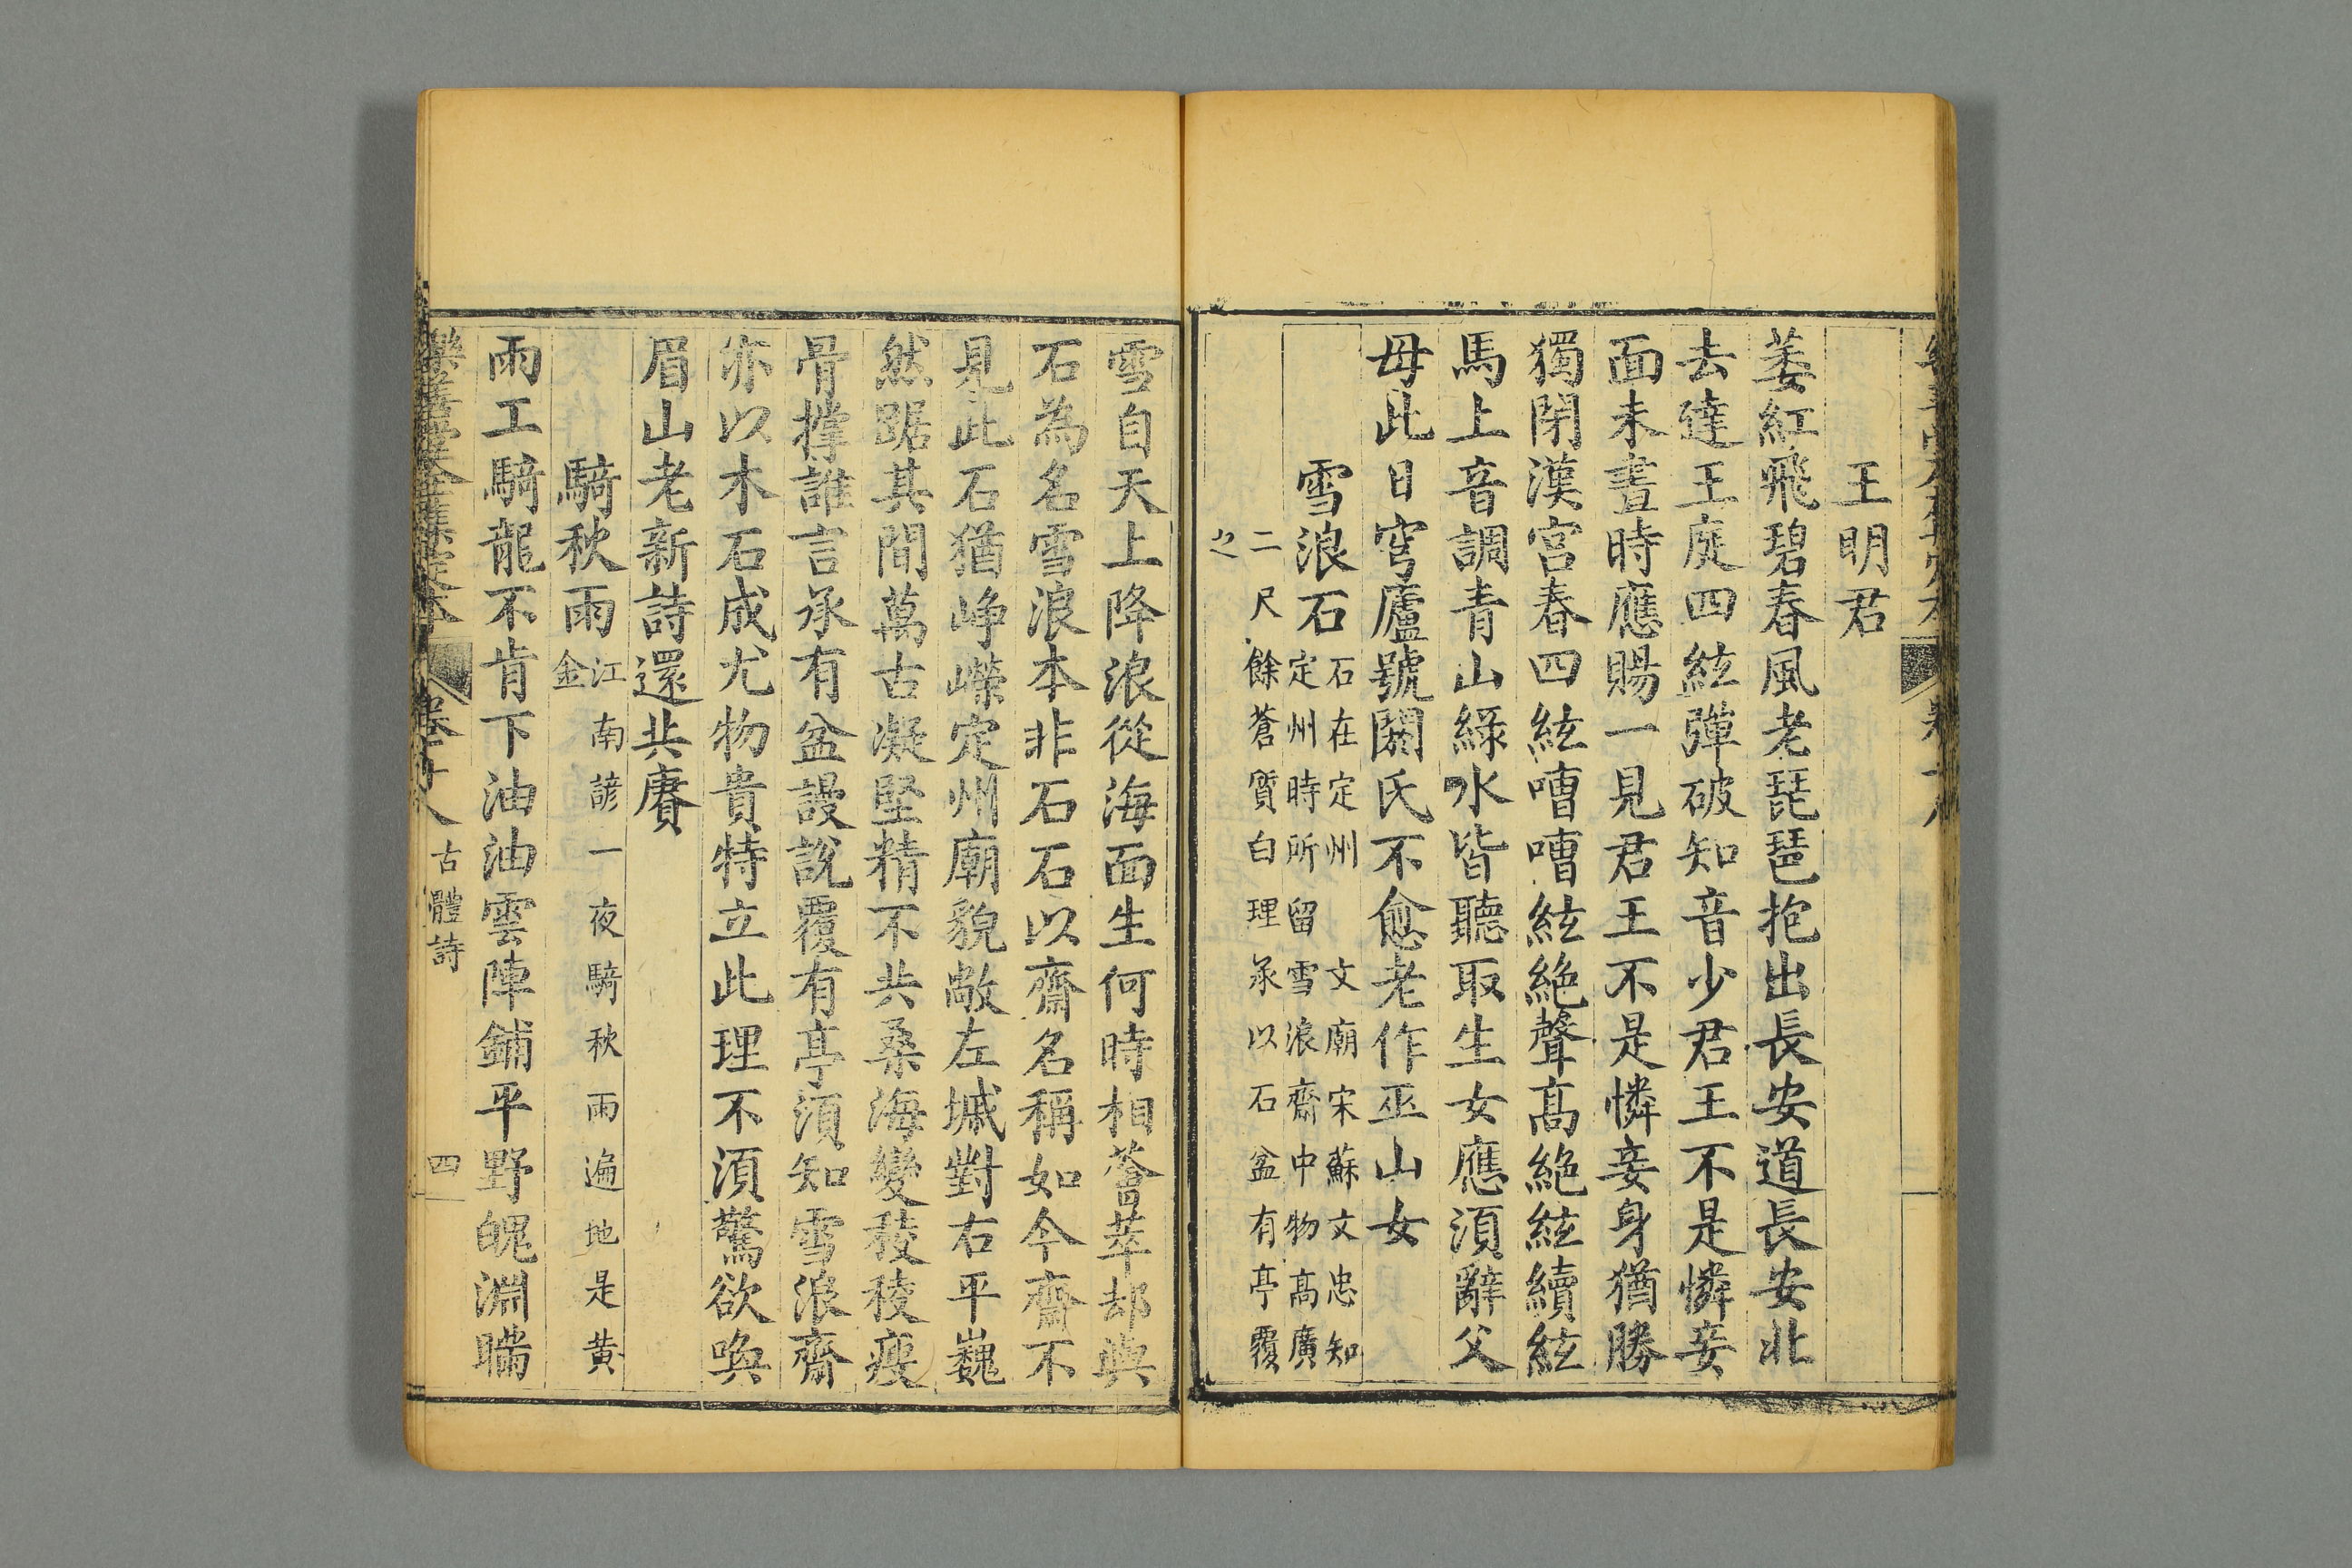 王明君
萎紅飛碧春風老琵琶抱出長安道長安北
去達王庭四絃彈破知音少君王不是憐妾
面未畫時應賜一見君王不是憐妾身猶勝
獨閉漢宮春四絃嘈嘈絃絕聲高絕絃續絃
馬上音調青山綠水皆聽取生女應湏辭父
母此日穹廬號閼氏不愈老作巫山女
雪浪石
石在定州文廟宋蘇文忠知
定州時所留雪浪齋中物高廣
二尺餘蒼質白理承以石盆有亭覆
之
雪自天上降浪從海面生何時相薈萃却與
石為名雪浪本非石石以齋名稱如今齋不
見此石猶崢嶸定州廟貌敞左墄對右平巍
然踞其間萬古凝堅精不共桑海變稜稜瘦
骨撐誰言承有盆謾說覆有亭湏知雪浪齋
亦以木石成尤物貴特立此理不湏驚欲喚
眉山老新詩還共賡
騎秋雨
江南諺一夜騎秋雨遍地是黃
金
雨工騎龍不肯下油油雲陣鋪平野皅淵曘
樂善堂全集定本
古體詩
四